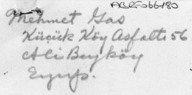 AGRF066480
Mehmet Gas
Küçük Köy Asfaltı 56
Ali Bey köy
Eyup.